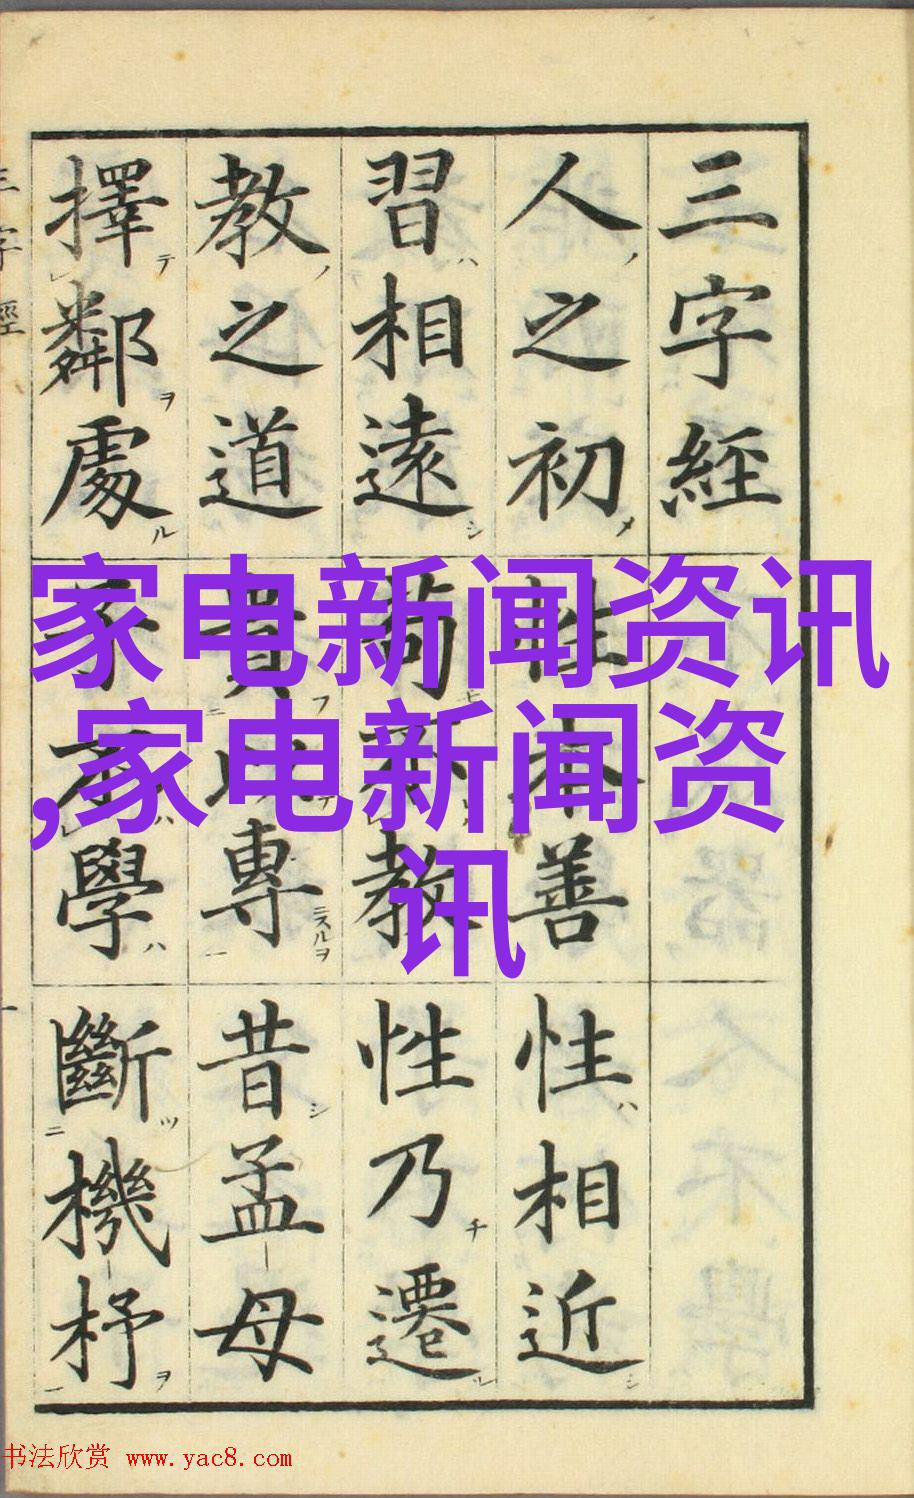 三字經
人之初 性本善 性相近
習相遠 苟不教 性乃遷
教之道 貴以專 昔孟母
擇鄰處 子不學 斷機杼
三字經
家电新闻资讯
,家电新闻资
讯
书法欣赏 www.yac8.com